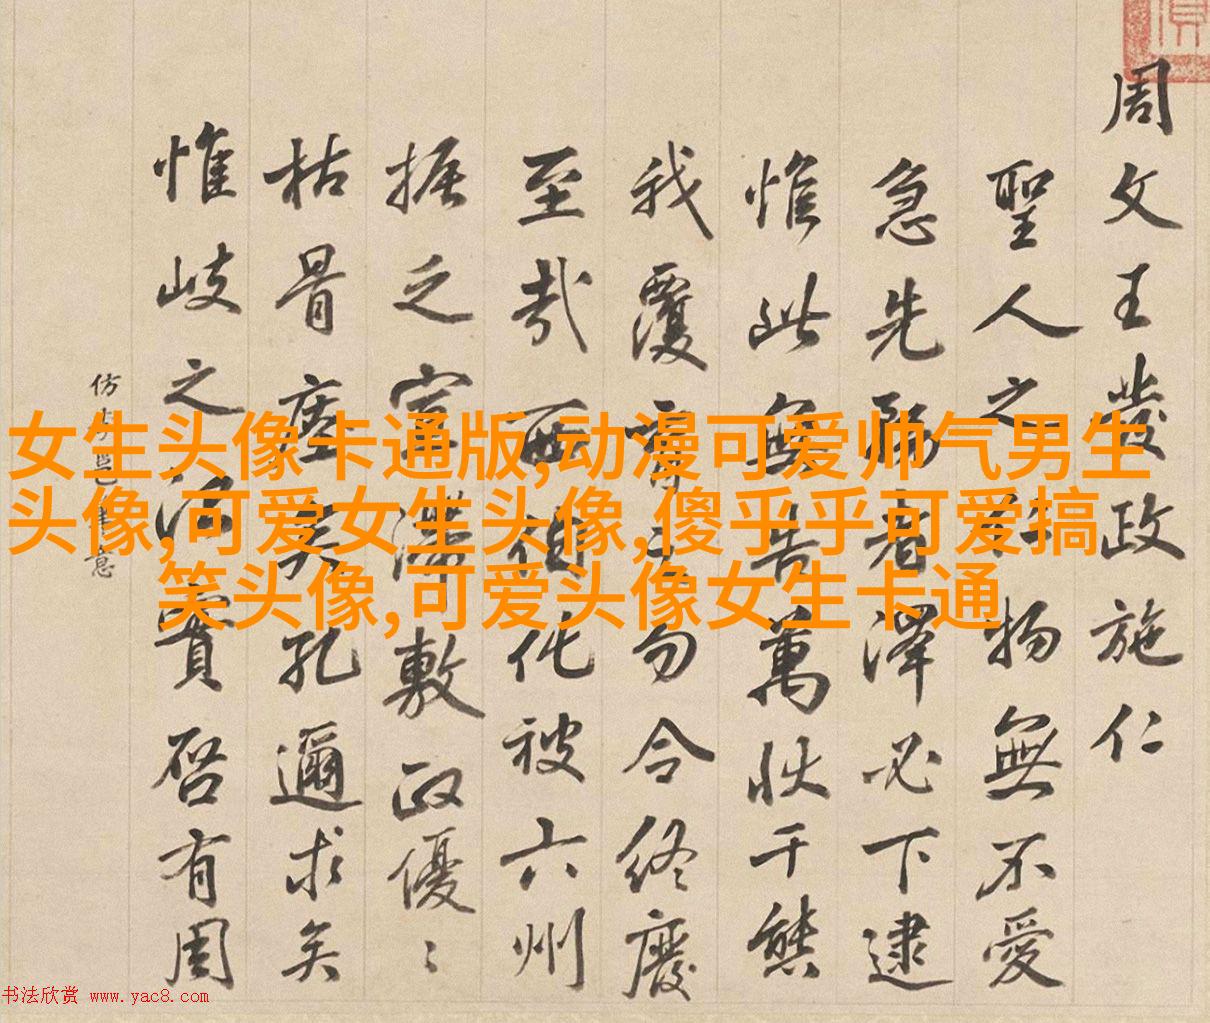 周文王發政施仁
聖人之於物無不愛
急先務者澤必下逮
惟此無告萬狀千態
我覆育之勿令終廢
至哉西伯化被六州
振之窮澤敷政優〻
枯骨瘞矣孔邇求矣
惟岐之沼實啓有周
仿意
女生头像卡通版,动漫可爱帅气男生
头像,可爱女生头像,傻乎乎可爱搞
笑头像,可爱头像女生卡通
书法欣赏 www.yac8.com